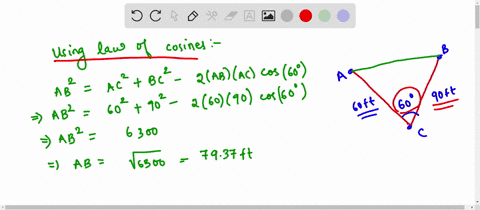 Using law of cosines:-
AB² = AC² + BC² - 2(AB)(AC) cos(60°)
⇒ AB² = 60² + 90² - 2(60)(90) cos(60°)
⇒ AB² = 6300
⇒ AB = √6300 = 79.37 ft
A
B
60ft
60°
90ft
C